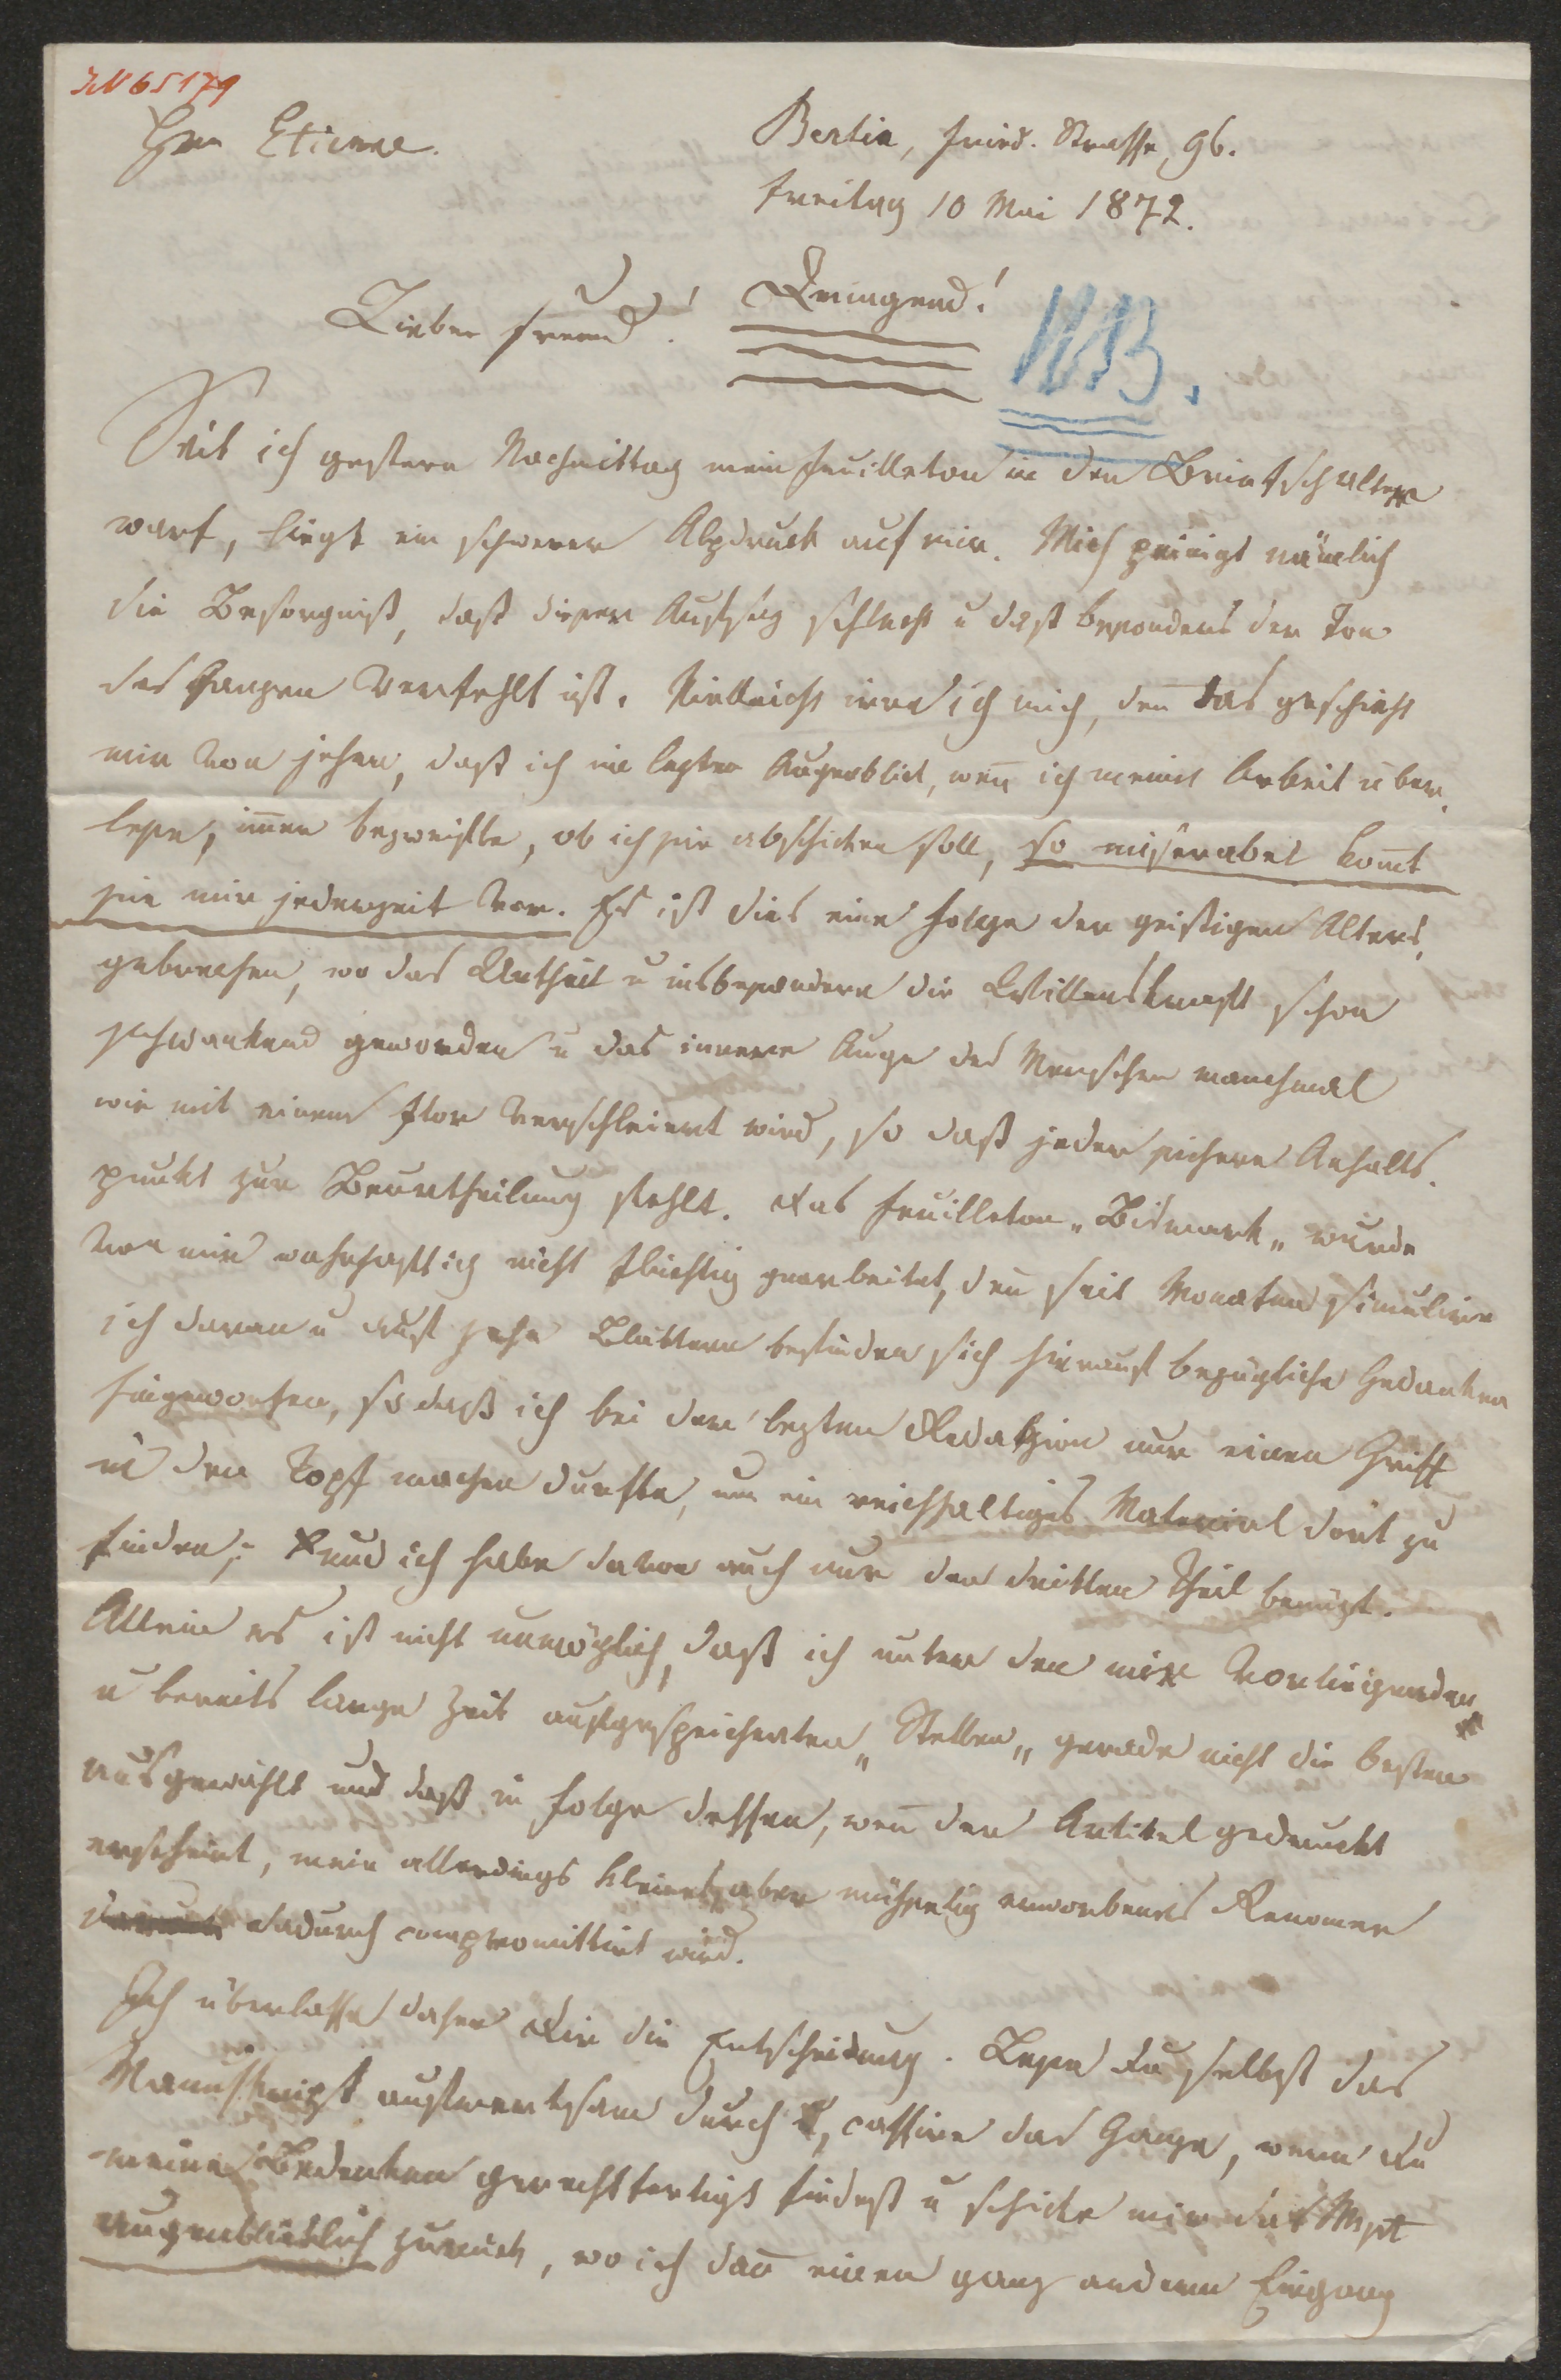 IN 65179
Hrn Etienne.
Berlin, Fried. Strasse, 96.
Freitag 10 Mai 1872.
Lieber Freund! Dringend!
NB.
Seit ich gestern Nachmittag mein Feuilleton in den Briefschalter
warf, liegt ein schwerer Alpdruck auf mir. Mich peinigt nämlich
die Besorgniß, daß dieser Aufsatz schlecht u daß besonders der Ton
des Ganzen verfehlt ist. Vielleicht irre ich mich, deñ das geschieht
mir von jeher, daß ich im lezten Augenblick, weñ ich meine Arbeit über-
lese, im̃er bezweifle, ob ich sie abschicken soll, so miserabel kom̃t
sie mir jederzeit vor. Es ist dies eine Folge der geistigen Alters-
gebrechen, wo das Urtheil u insbesondere die Willenskraft schon
schwankend geworden u das innere Auge des Menschen manchmal
wie mit einem Flor verschleiert wird, so daß jeder sichere Anhalts-
punkt zur Beurtheilung fehlt. Das Feuilleton „Bismark„ wurde
von mir wahrhaftig nicht flüchtig gearbeitet, deñ seit Monaten simulire
ich daran u auf zehn Blättern befinden sich hierauf bezügliche Gedanken
hingeworfen, so daß ich bei der lezten Redakzion nur einen Griff
in den Topf machen durfte, um ein reichhaltiges Material dort zu
finden; und ich habe davon auch nur den dritten Theil benüzt.
Allein es ist nicht unmöglich, daß ich unter den mir vorliegenden
u bereits lange Zeit aufgespeicherten „Stellen„ gerade nicht die besten
ausgewählt und daß in Folge dessen, weñ der Artikel gedruckt
erscheint, mein allerdings kleines, aber mühselig erworbenes Renomee
dadurch compromittirt wird.
Ich überlasse daher Dir die Entscheidung. Lese Du selbst das
Manuskript aufmerksam durch, cassire das Ganze, wenn Du
meine Bedenken gerechtfertigt findest u schicke mir das Mpt
augenblicklich zurück, wo ich dañ einen ganz anderen Eingang